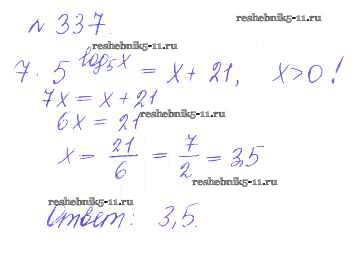 № 337.
reshebnik5-11.ru
reshebnik5-11.ru
7 · 5^{log₅x} = x + 21,   x > 0 !
7x = x + 21
reshebnik5-11.ru
6x = 21
x = 21/6 = 7/2 = 3,5
reshebnik5-11.ru
reshebnik5-11.ru
Ответ: 3,5.